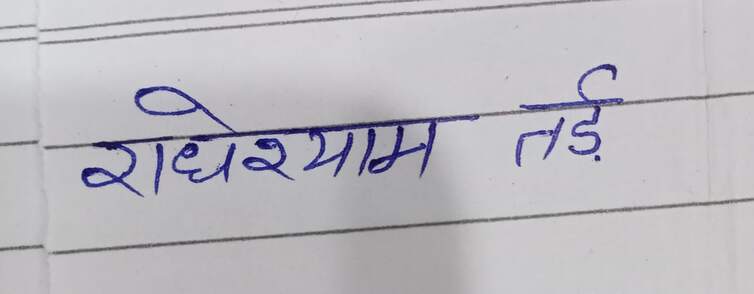 राधेश्याम तर्ड़